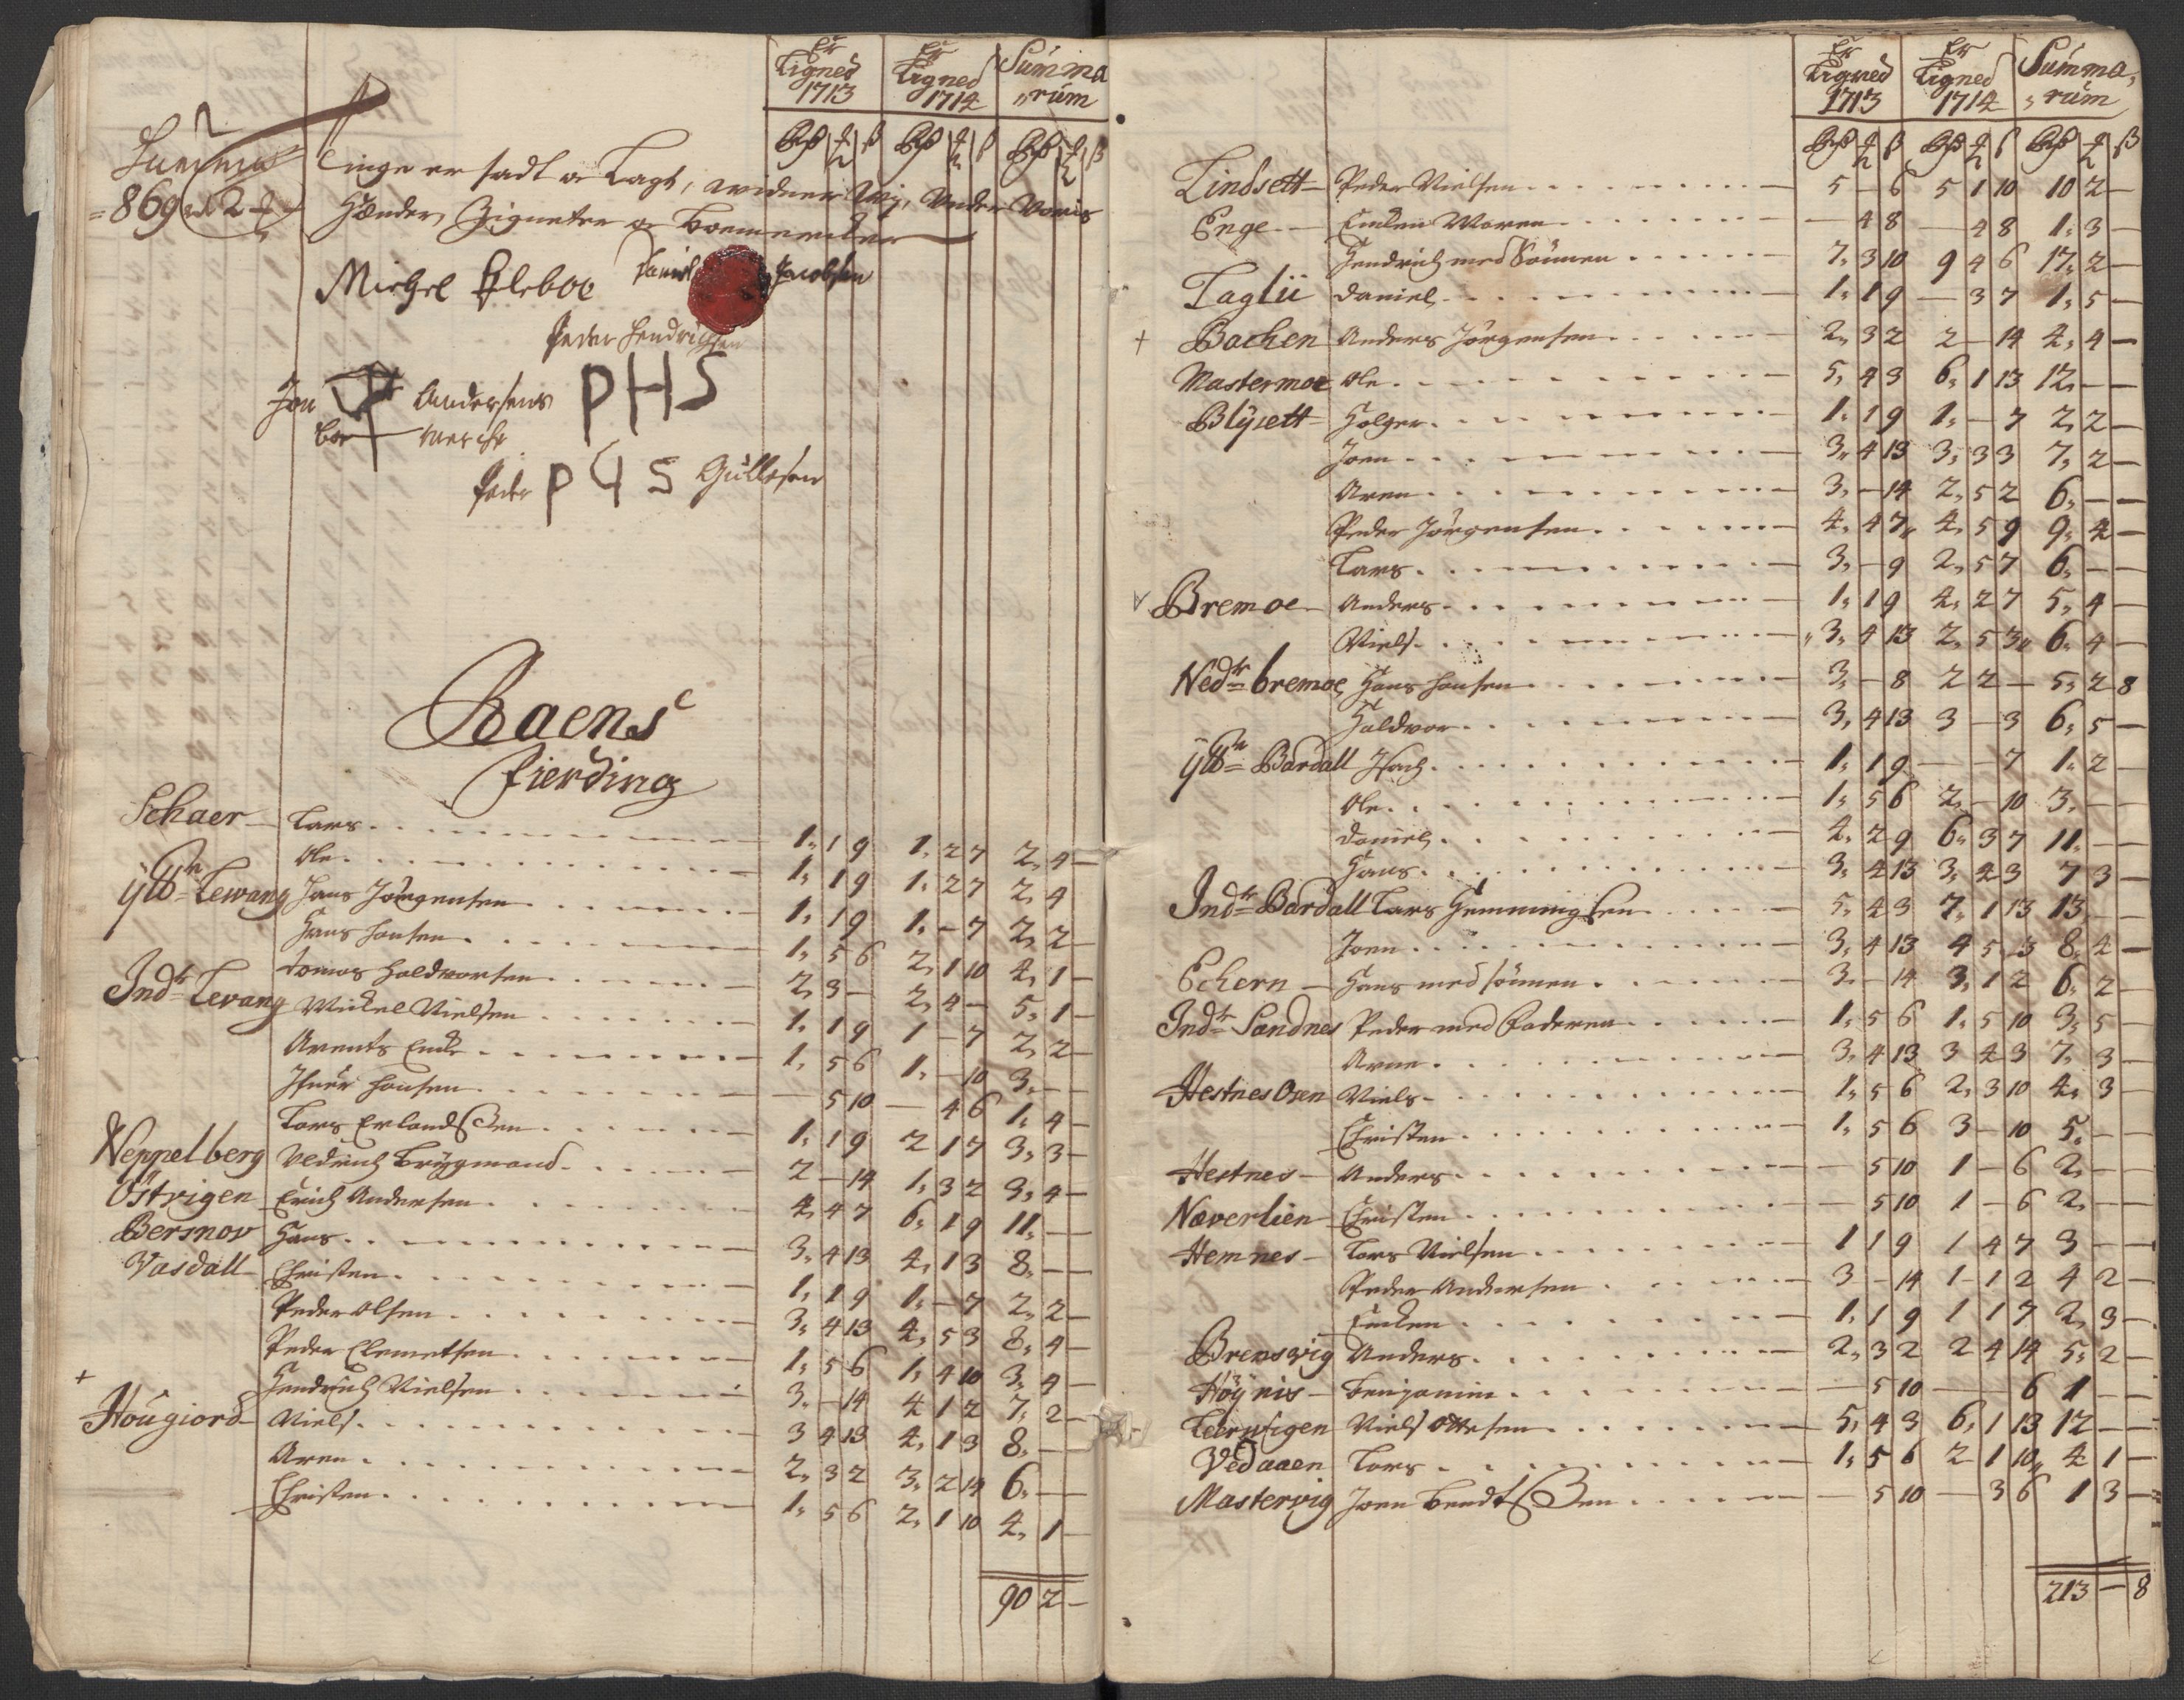 Er Er Summa
Ligned Ligned "rum
1713 1714
Rdr ß Rdr ß Rdr ß
Summa
= 869 rd 2
Linge er sadt og Lagt, widner Wij, Under Voris
Hænder, Zigneter og Boemercker
Michel Pleboe Daniel Jacobsen
Peder Hendrichsen
Jon Andersens PHS
boe merche
Peder P G S Gullesen
Raens
fierding
Schaer Lars 1, 1 9 1, 2 7 2, 4 —
Ole 1, 1 9 1, 2 7 2, 4
ÿtt= Lewang Hans Jørgensen 1, 1 9 1, – 7 2, 2 —
Hans Hansen 1, 5 6 2, 1 10 4, 1 —
Tomas Haldvorsen 2, 3 – 2, 4 – 5, 1 —
Indr= Levang Mickel Nielsen 1, 1 9 1 – 7 2, 2 —
Arents Encke 1, 5 6 1, – 10 3, — —
Ifuer Hansen — 5 10 — 4 6 1, 4 —
Lars Erlandssen 1, 1 9 2 1 7 3, 3 —
Neppelberg Uldrich Brÿgmand 2 – 14 1, 3 2 3, 4 —
Østvigen Erich Andersen 4, 4 7 6, 1 9 11, — —
Bersnov Hans 3, 4 13 4, 1 3 8, — —
Vasdall Christen 1, 1 9 1, – 7 2, 2 —
Peder Olsen 3, 4 13 4, 5 3 8, 4 —
Peder Clemetsen 1, 5 6 1, 4 10 3, 4 —
+ Hendrich Nielsen 3, – 14 4 1 2 7, 2 —
Hougiord Niels 3 4 13 4, 1 3 8, — —
Aren 2, 3 2 3, 2 14 6, — —
Christen 1, 5 6 2, 1 10 4, 1 —
90 2 –
Er Er Summa,
Ligned Ligned "rum
1713 1714
Rdr ß Rdr ß Rdr ß
Lindsett Peder Nielsen 5 – 6 5 1 10 10 2 —
Enge Encken Maren — 4 8 — 4 8 1, 3 —
Hendrich med Sønnen 7, 3 10 9 4 6 17, 2 —
Taglii Daniel 1, 1 9 — 3 7 1, 5 —
+ Bachen Anders Jørgensen 2, 3 2 2 – 14 4, 4 —
Mastermoe Ole 5, 4 3 6, 1 13 12, — —
Blÿsett Holger 1, 1 9 1, – 7 2, 2 —
Joen 3, 4 13 3, 3 3 7, 2 —
Aren 3, – 14 2, 5 2 6, — —
Peder Jørgensen 4, 4 7 4, 5 9 9, 4 —
Lars 3, – 9 2, 5 7 6, — —
Bremoe Anders 1, 1 9 4, 2 7 5, 4 —
Niels 3, 4 13 2, 5 3 6, 4 —
Nedr= bremoe Hans Hansen 3, – 8 2 2 — 5, 2 8
Haldvor 3, 4 13 3 – 3 6, 5 —
ÿtt= Bardall Isach 1, 1 9 — – 7 1, 2 —
Ole 1, 5 6 2, – 10 3, — —
Daniel 4, 2 9 6, 3 7 11, — —
Hans 3, 4 13 3, 4 3 7 3 —
Indr= Bardall Lars Hemmingsen 5, 4 3 7, 1 13 13 — —
Joen 3, 4 13 4 5 3 8, 4 —
Echern Hans med sønnen 3, – 14 3, 1 2 6, 2 —
Indr= Sandnes Peder med Faderen 1, 5 6 1, 5 10 3, 5 —
Arne 3, 4 13 3 4 3 7, 3 —
Hestnes Osen Niels 1, 5 6 2, 3 10 4, 3 —
Christen 1, 5 6 3 – 10 5, — —
Hestnes Anders — 5 10 1 – 6 2, — —
Næverlien Christen — 5 10 1 – 6 2, — —
Hemnes Lars Nielsen 1 1 9 1 4 7 3 — —
Peder Andersen 3 – 14 1 – 1 2 4 2 —
Encken 1, 1 9 1 1 7 2, 3 —
Brensvig Anders 2, 3 2 2 4 14 5, 2 —
Høÿnis Benjamin — 5 10 — — 6 1 — —
Leervigen Niels Ottesen 5, 4 3 6, 1 13 12 — —
Vedaaen Lars 1, 5 6 2 1 10 4 1 —
Mastervig Joen Bendtssen — 5 10 — 3 6 1 3 —
213 – 8